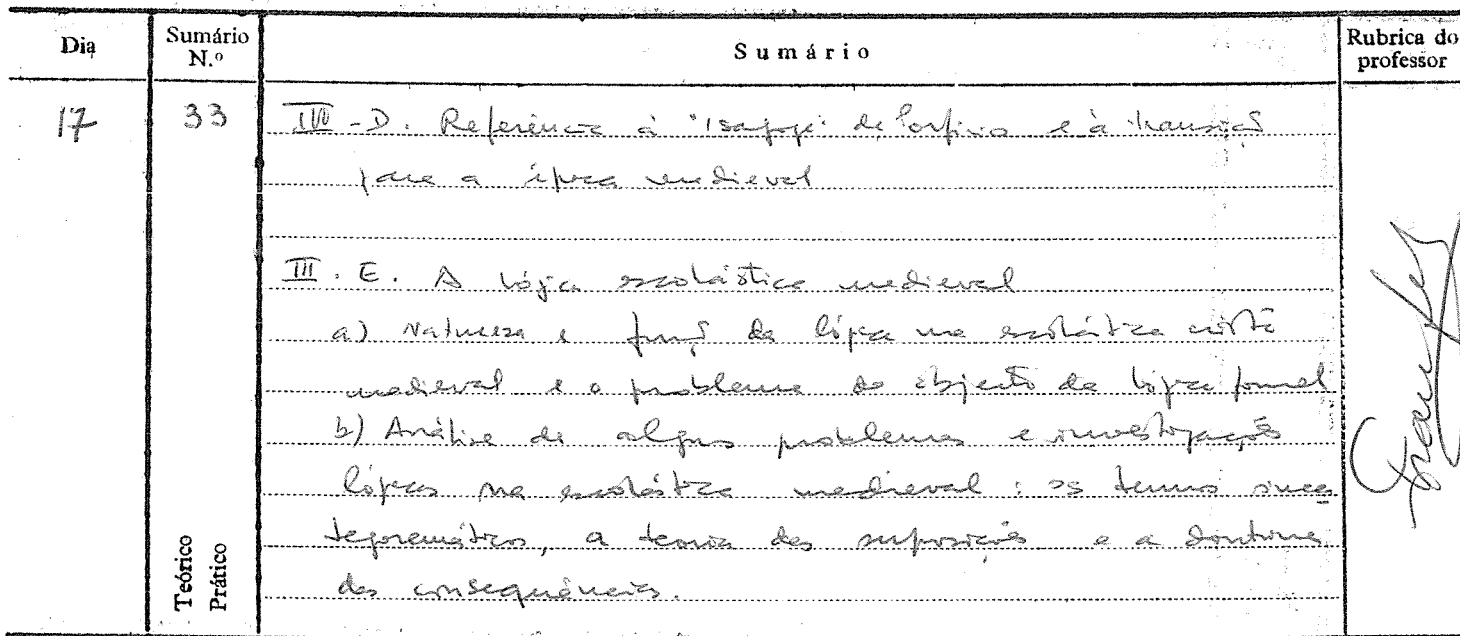 Dia
Sumário N.º
Sumário
Rubrica do professor
17
33
III-D. Referência à "Isagoge" de Porfírio e à transição
para a época medieval
III. E. A lógica escolástica medieval
a) Natureza e função da lógica na escolástica cristã
medieval e o problema do objecto da lógica formal
b) Análise de alguns problemas e investigações
lógicas na escolástica medieval: os termos sinca
tegoremáticos, a teoria das suposições e a doutrina
das consequências.
Teórico
Prático